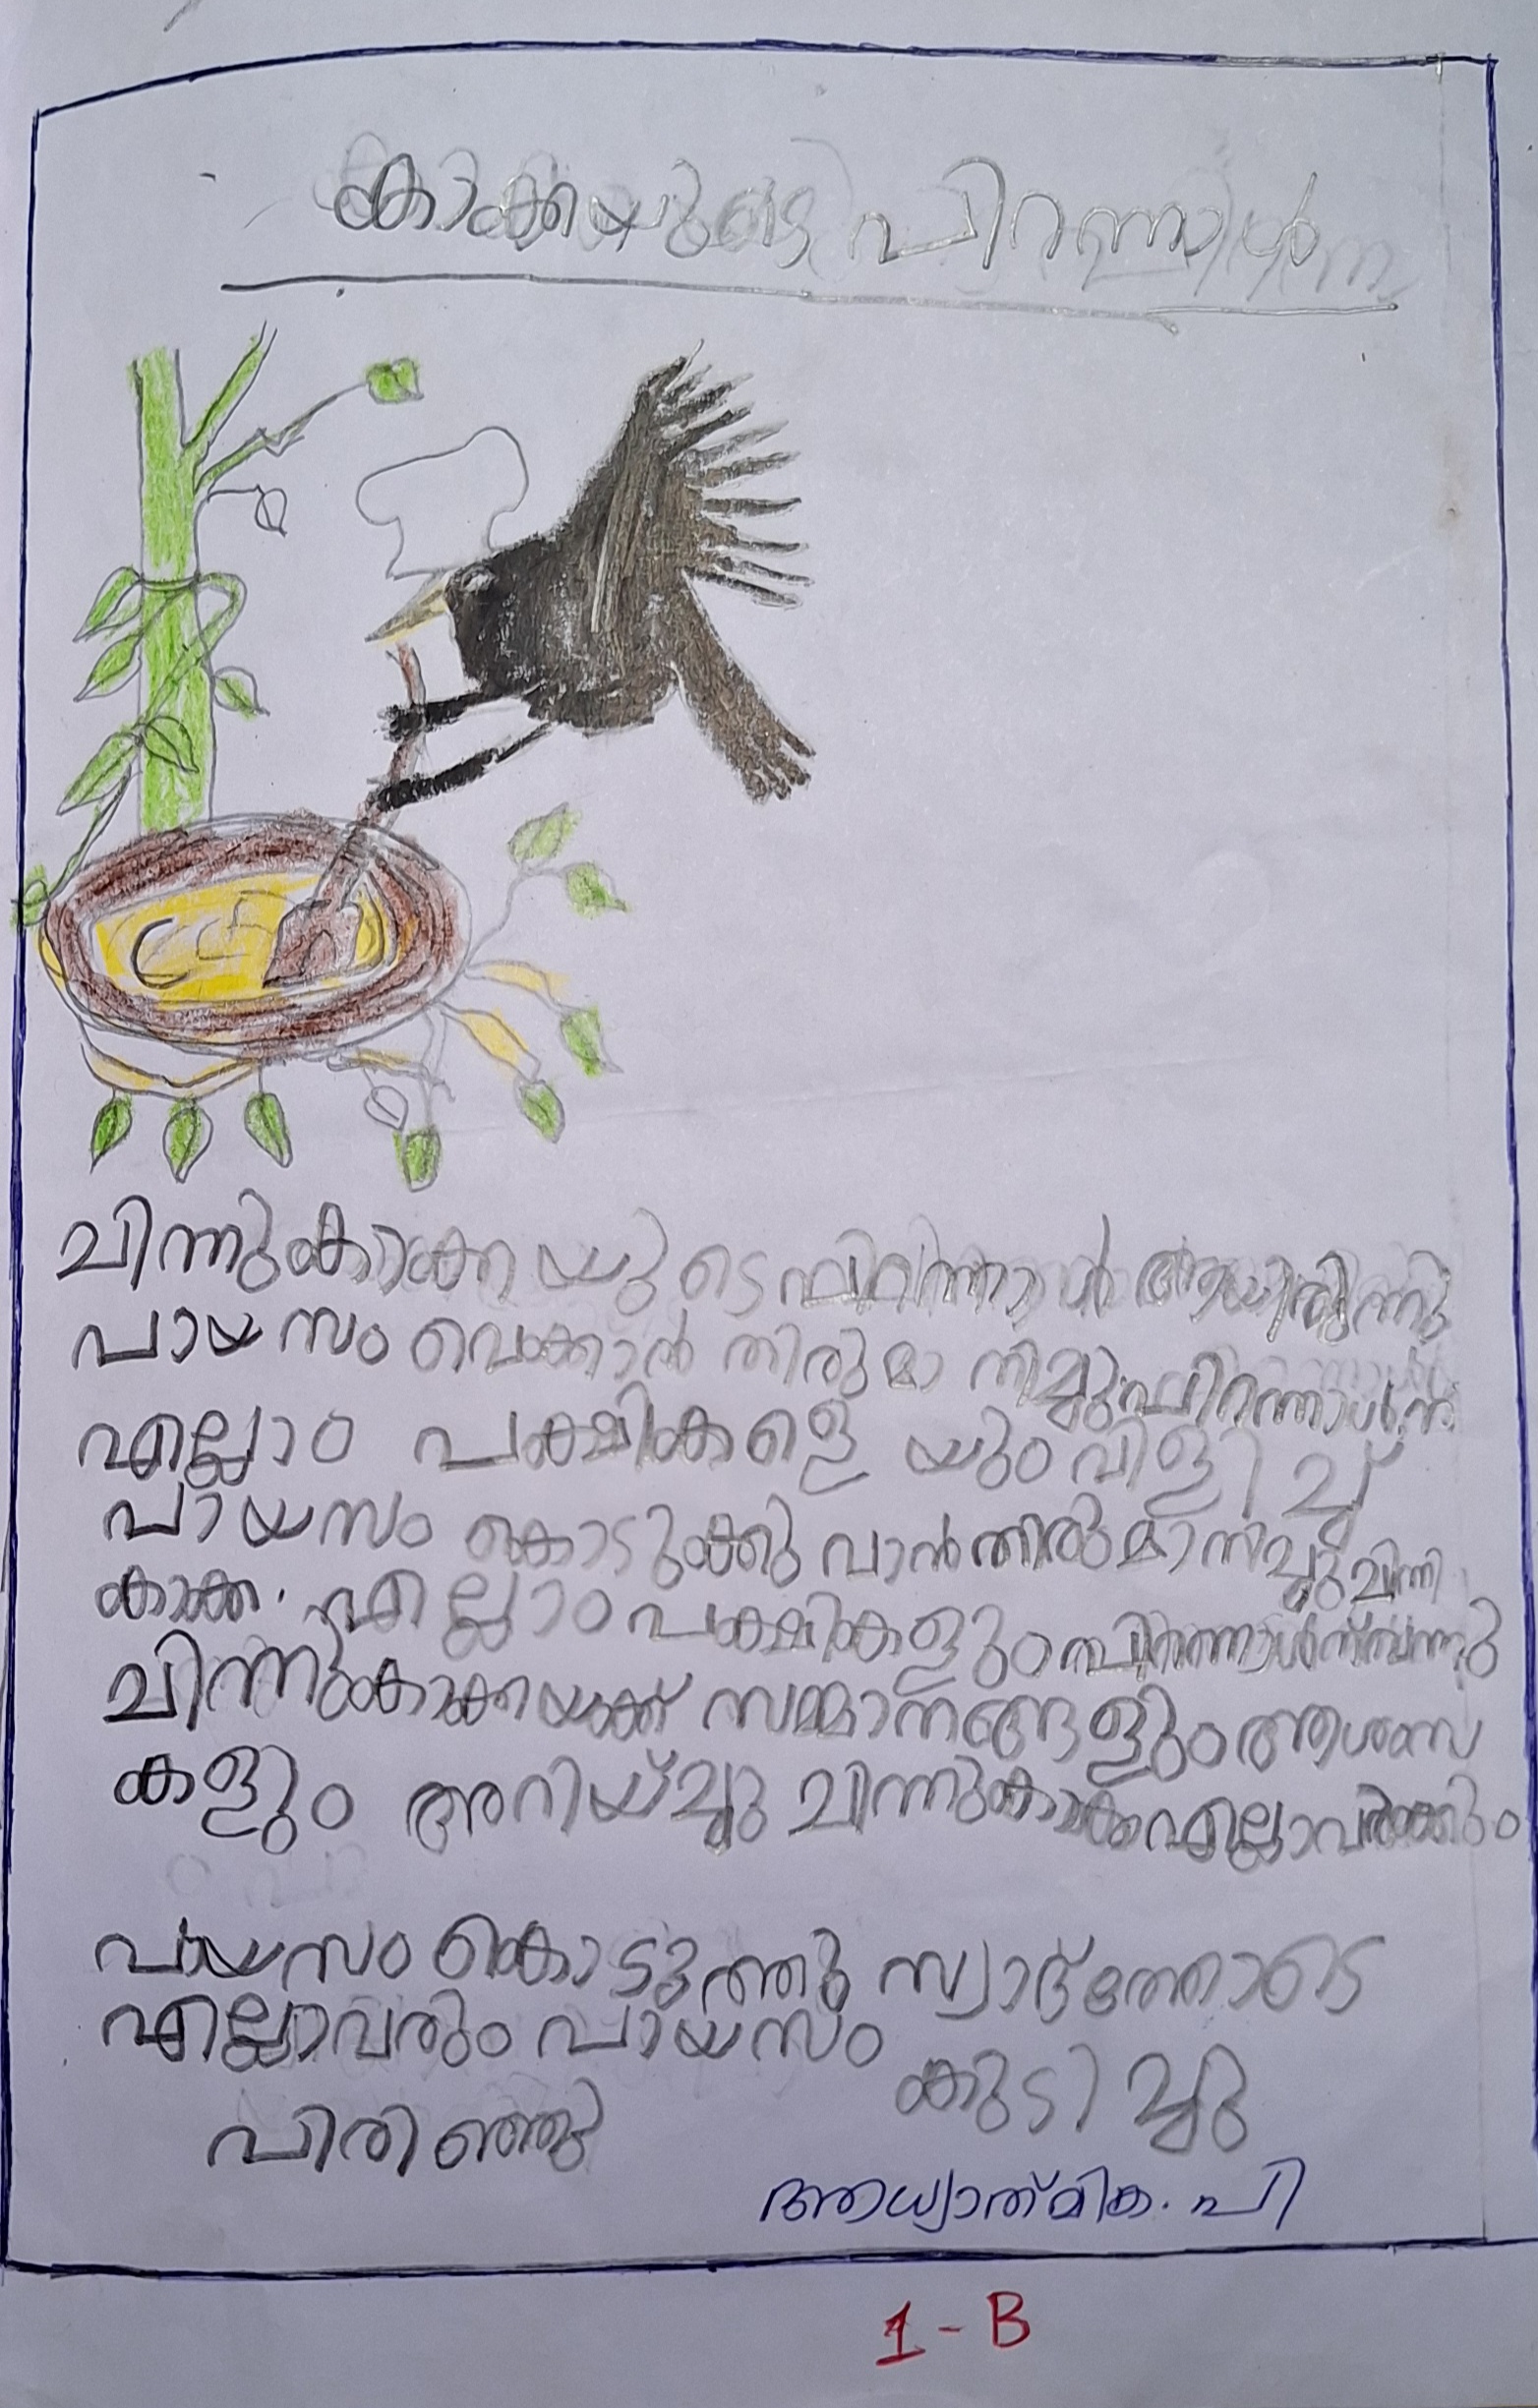 കാക്കയുടെ പിറന്നാൾ
ചിന്നുകാക്കയുടെ പിറന്നാൾ ആയിരുന്നു
പായസം വെക്കാൻ തിരുമാനിച്ചു പിറന്നാൾന്
എല്ലാം പക്ഷികളെയും വിളിച്ച്
പായസം കൊടുക്കുവാൻ തിരുമാനിച്ചു ചിന്നു
കാക്ക. എല്ലാം പക്ഷികളും പിറന്നാൾന് വന്നു
ചിന്നുകാക്കയക്ക് സമ്മാനങ്ങളും ആശംസ
കളും അറിയ്ച്ചു ചിന്നുകാക്ക എല്ലാവർക്കും
പയസം കൊടുത്തു സ്വാദ്ത്തോടെ
എല്ലാവരും പായസം കുടിച്ചു
പിരിഞ്ഞു
ആധ്യാത്മിക. പി
1-B